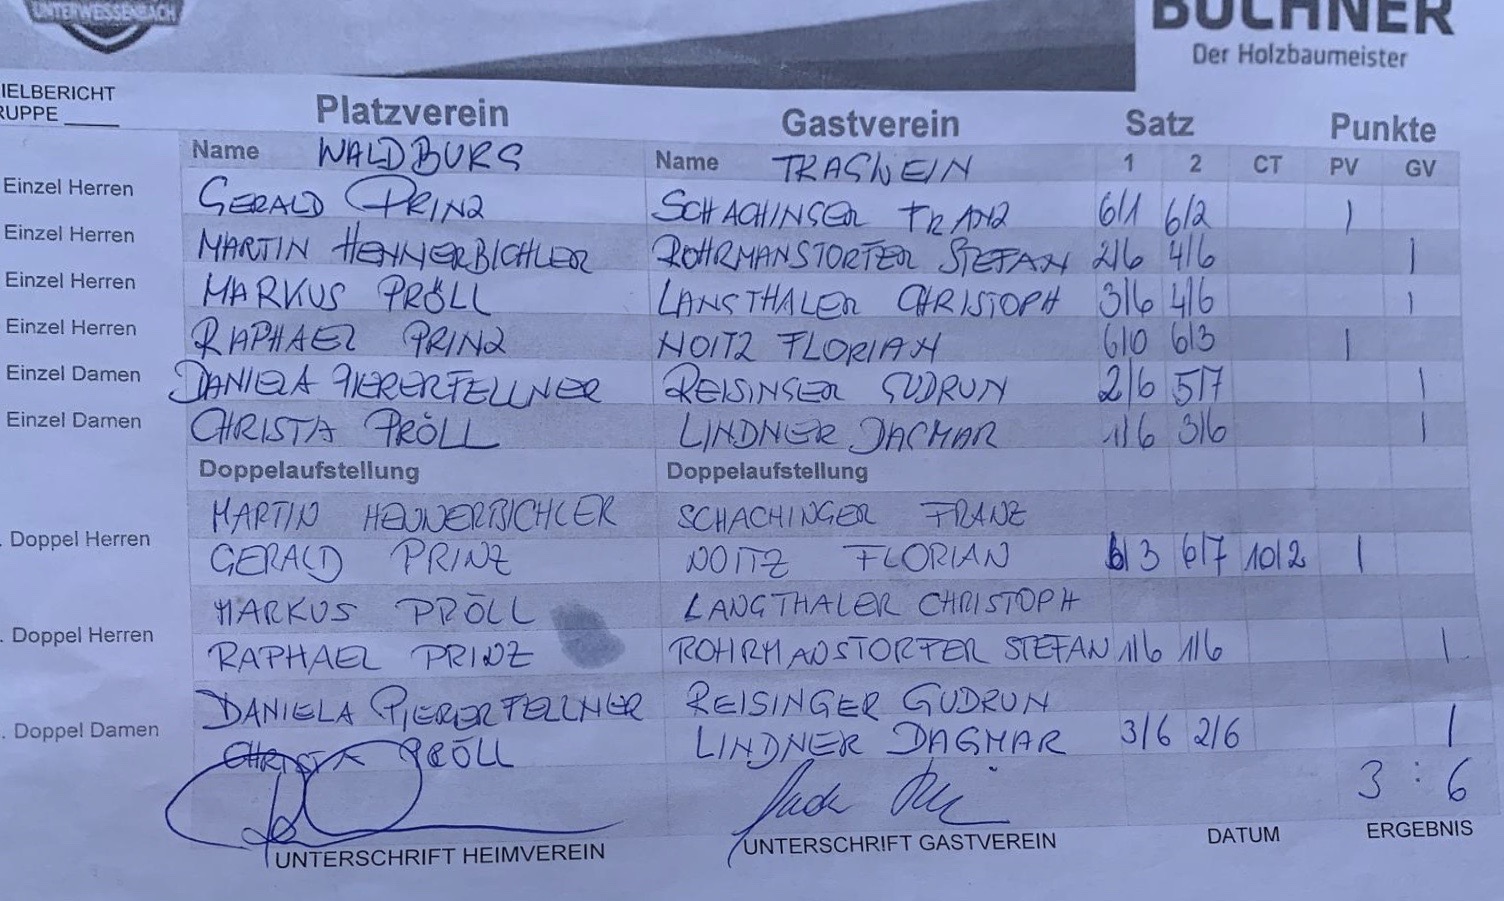 UNTERWEISSENBACH
BUCHNER
Der Holzbaumeister
IELBERICHT
RUPPE ____
Platzverein Gastverein Satz Punkte
Name WALDBURG Name TRAGWEIN 1 2 CT PV GV
Einzel Herren GERALD PRINZ SCHACHINGER FRANZ 6/1 6/2 1
Einzel Herren MARTIN HENNERBICHLER ROHRMANSTORFER STEFAN 2/6 4/6 1
Einzel Herren MARKUS PRÖLL LANGTHALER CHRISTOPH 3/6 4/6 1
Einzel Herren RAPHAEL PRINZ NOITZ FLORIAN 6/0 6/3 1
Einzel Damen DANIELA PIERERFELLNER REISINGER GUDRUN 2/6 5/7 1
Einzel Damen CHRISTA PRÖLL LINDNER DAGMAR 1/6 3/6 1
Doppelaufstellung Doppelaufstellung
MARTIN HENNERBICHLER SCHACHINGER FRANZ
. Doppel Herren GERALD PRINZ NOITZ FLORIAN 6/3 6/7 10/2 1
MARKUS PRÖLL LANGTHALER CHRISTOPH
. Doppel Herren RAPHAEL PRINZ ROHRMANSTORFER STEFAN 1/6 1/6 1
DANIELA PIERERFELLNER REISINGER GUDRUN
. Doppel Damen CHRISTA PRÖLL LINDNER DAGMAR 3/6 2/6 1
3 : 6
UNTERSCHRIFT HEIMVEREIN UNTERSCHRIFT GASTVEREIN DATUM ERGEBNIS